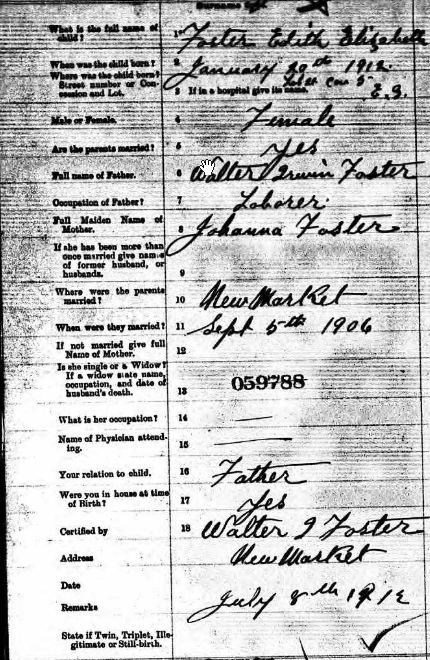 What is the full name of child? 1 Foster Edith Elizabeth
When was the child born? 2 January 29th 1912
Where was the child born? Street number or Concession and Lot. 3 If in a hospital give its name. Con 5 E.G.
Male or Female. 4 Female
Are the parents married? 5 Yes
Full name of Father. 6 Walter Irwin Foster
Occupation of Father? 7 Laborer.
Full Maiden Name of Mother. 8 Johanna Foster
If she has been more than once married give name of former husband, or husbands. 9
Where were the parents married? 10 New Market
When were they married? 11 Sept 5th 1906
If not married give full Name of Mother. 12
Is she single or a Widow? If a widow state name, occupation, and date of husband's death. 13 059788
What is her occupation? 14 —
Name of Physician attending. 15 —
Your relation to child. 16 Father
Were you in house at time of Birth? 17 Yes
Certified by 18 Walter I Foster
Address New Market
Date July 8th 1912
Remarks
State if Twin, Triplet, Illegitimate or Still-birth.